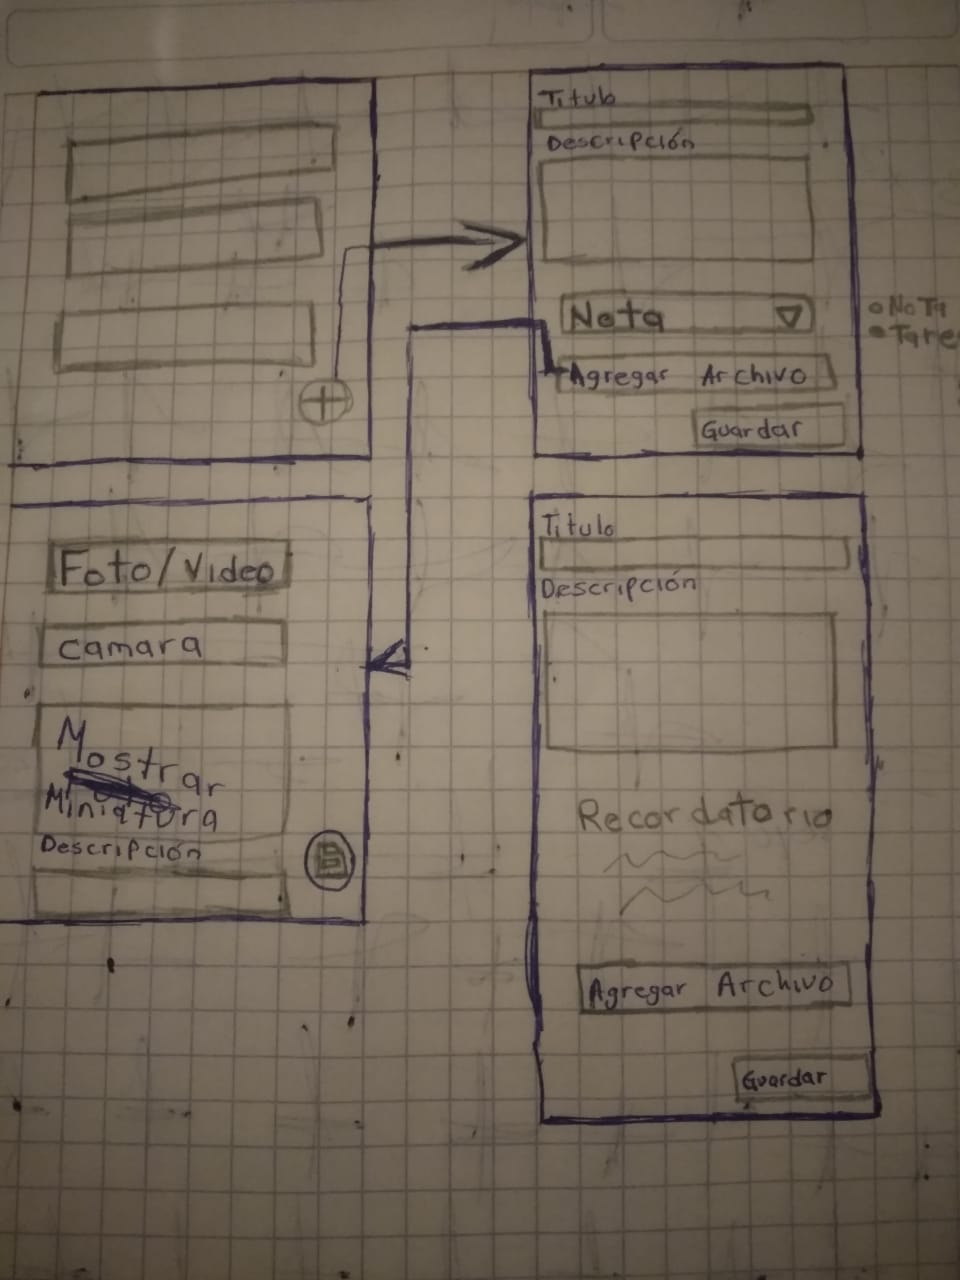 Titulo
Descripción
Nota
Agregar Archivo
Guardar
• Nota
Foto/Video
camara
Mostrar
Miniatura
Descripción
Titulo
Descripción
Recordatorio
Agregar Archivo
Guardar